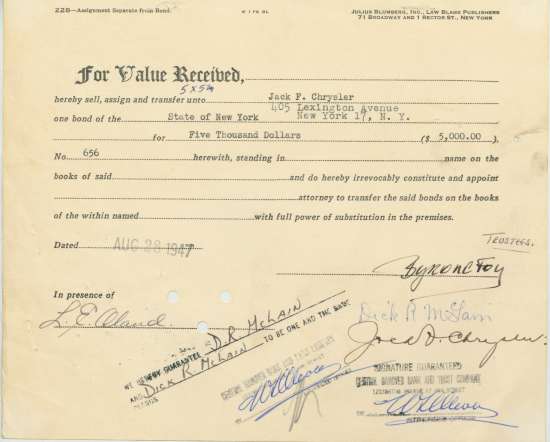 228—Assignment Separate from Bond.
JULIUS BLUMBERG, INC., LAW BLANK PUBLISHERS
71 BROADWAY AND 1 RECTOR ST., NEW YORK
For Value Received,
5 x 5m
hereby sell, assign and transfer unto Jack F. Chrysler
405 Lexington Avenue
one bond of the State of New York New York 17, N. Y.
for Five Thousand Dollars ($ 5,000.00 ).
No. 656 herewith, standing in name on the
books of said and do hereby irrevocably constitute and appoint
attorney to transfer the said bonds on the books
of the within named with full power of substitution in the premises.
TRUSTEES.
Dated AUG 28 1947
Byron C Foy
In presence of
Dick R McLain
L. E.
Jack F. Chrysler
WE HEREBY GUARANTEE D. R. McLAIN
AND DICK R McLAIN TO BE ONE AND THE SAME
SIGNATURE GUARANTEED
CENTRAL HANOVER BANK AND TRUST COMPANY
CENTRAL HANOVER BANK AND TRUST COMPANY